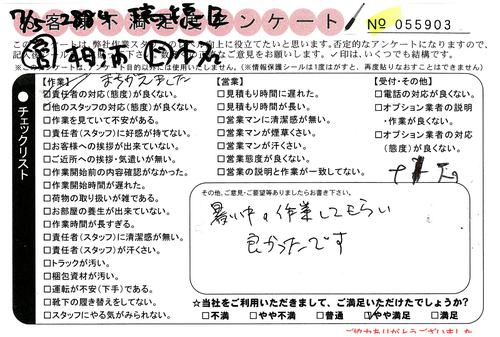 お客様不満足度アンケート
No 055903
【作業】
まちがえました
□責任者の対応(態度)が良くない。
□他のスタッフの対応(態度)が良くない。
□作業を見ていて不安がある。
□責任者(スタッフ)に好感が持てない。
□お客様への挨拶が出来ていない。
□ご近所への挨拶・気遣いが無い。
□作業開始前の内容確認がなかった。
□作業開始時間が遅れた。
□荷物の取り扱いが雑である。
□お部屋の養生が出来ていない。
□作業時間が長すぎる。
□責任者(スタッフ)に清潔感が無い。
□責任者(スタッフ)が汗くさい。
□トラックが汚い。
□梱包資材が汚い。
□運転が不安(下手)である。
□靴下の履き替えをしてない。
□スタッフにやる気がみられない。
【営業】
□見積もり時間に遅れた。
□見積もり時間が長い。
□営業マンに清潔感が無い。
□営業マンが煙草くさい。
□営業マンが汗くさい。
□営業態度が良くない。
□営業の説明と作業が一致してない。
【受付・その他】
□電話の対応が良くない。
□オプション業者の説明
・作業が良くない。
□オプション業者の対応
(態度)が良くない。
チェックリスト
その他、ご意見・ご要望等ありましたらお書き下さい。
暑い中の作業してもらい
良かったです
☆当社をご利用いただきまして、ご満足いただけたでしょうか?
□不満 □やや不満 □普通 ☑やや満足 □満足
ご協力ありがとうございました